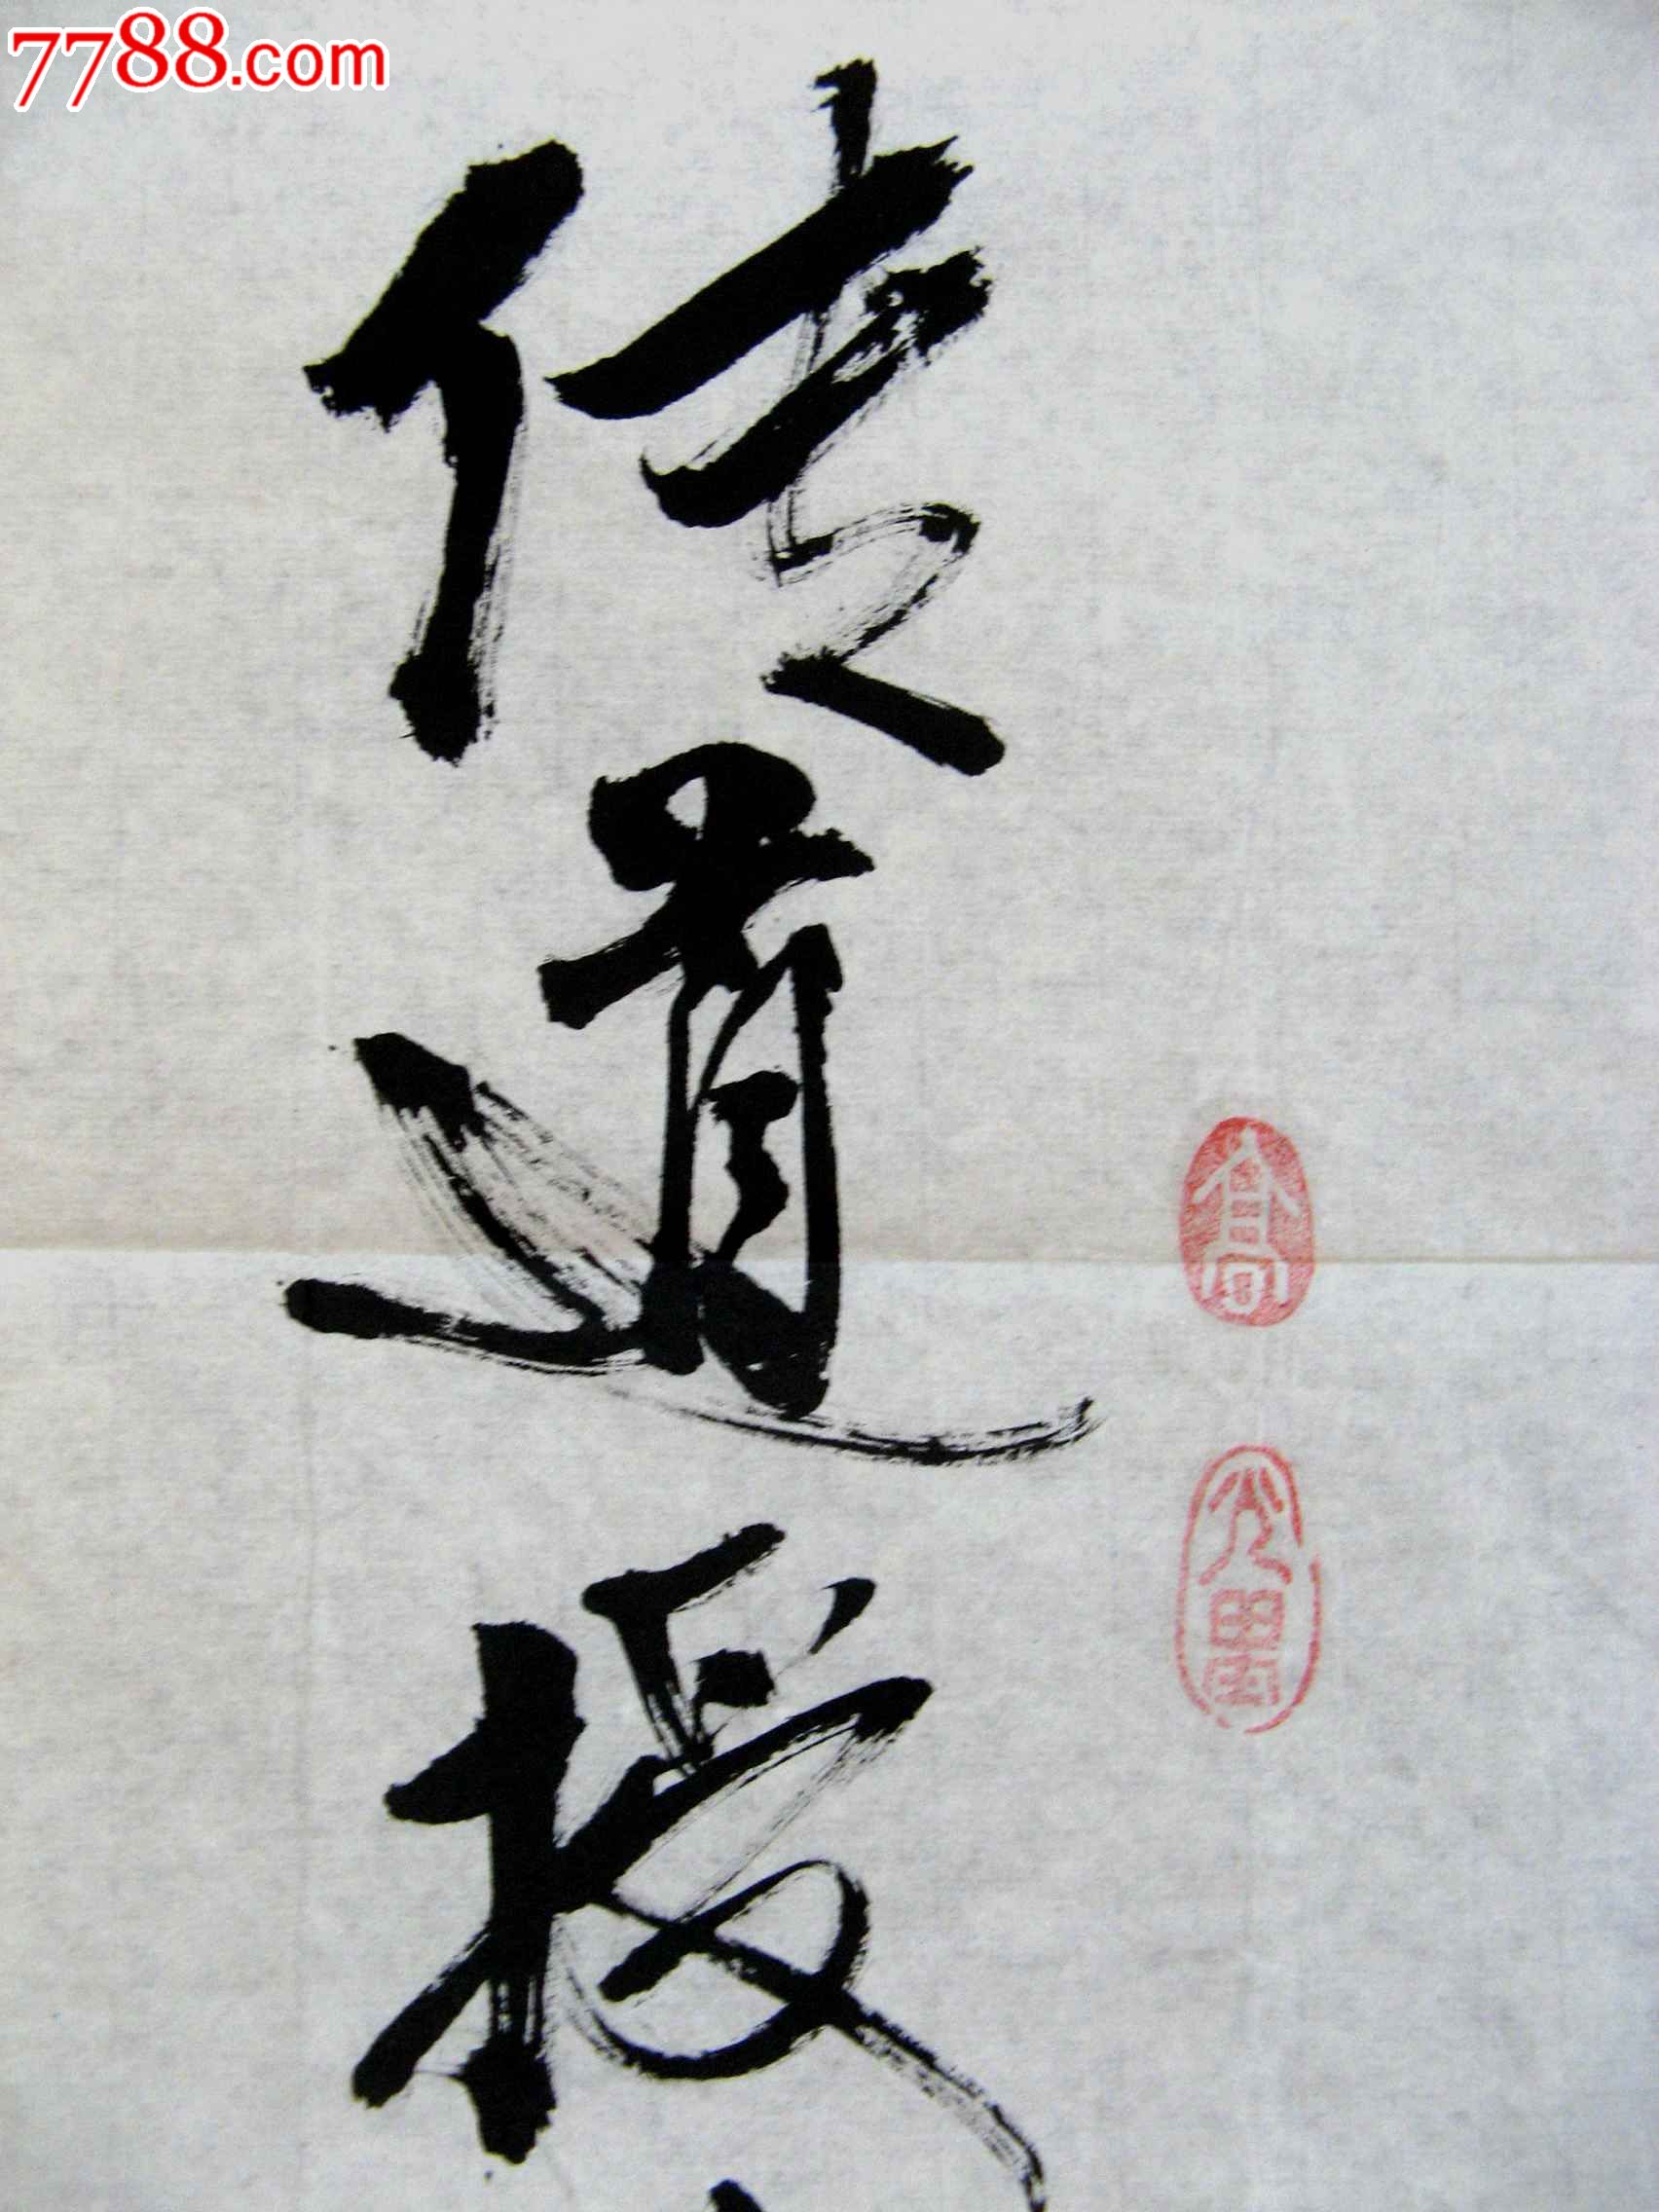 7788.com
传道授
高